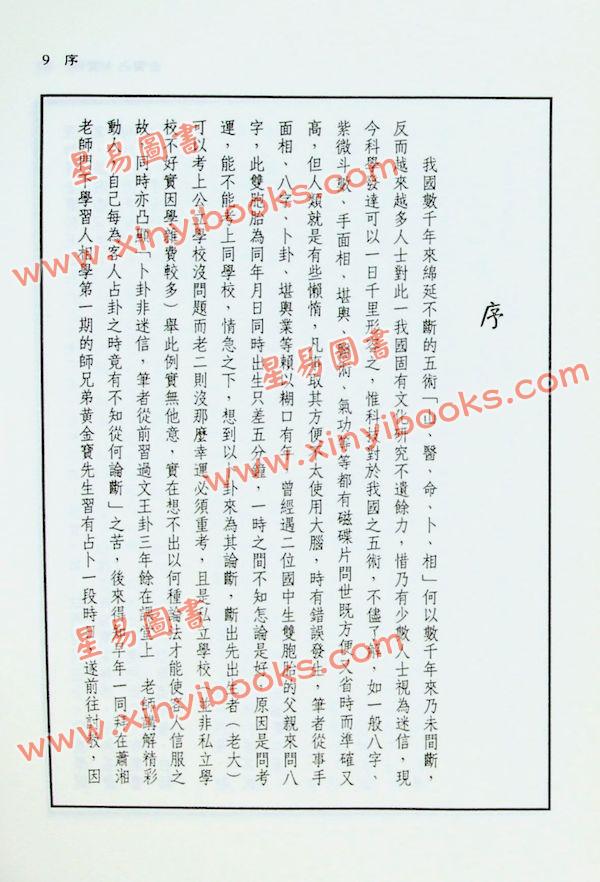 9 序
序
我國數千年來綿延不斷的五術「山、醫、命、卜、相」何以數千年來乃未間斷，
反而越來越多人士對此一我國固有文化研究不遺餘力，惜乃有少數人士視為迷信，現
今科學發達可以一日千里形容之，惟科技對於我國之五術，不儘了解，如一般八字、
紫微斗數、手面相、堪輿、醫術、氣功等等都有磁碟片問世既方便又省時而準確又
高，但人類就是有些懶惰，凡事取其方便不太使用大腦，時有錯誤發生，筆者從事手
面相、八字、卜卦、堪輿業等賴以糊口有年，曾經遇二位國中生雙胞胎的父親來問八
字，此雙胞胎為同年月日同時出生只差五分鐘，一時之間不知怎論是好，原因是問考
運，能不能考上同學校，情急之下，想到以卜卦來為其論斷，斷出先出生者（老大）
可以考上公立學校沒問題而老二則沒那麼幸運必須重考，且是私立學校（並非私立學
校不好實因學雜費較多）舉此例實無他意，實在想不出以何種論法才能使客人信服之
故，同時亦凸顯「卜卦非迷信，筆者從前習過文王卦三年餘在課堂上　老師講解精彩
動人，自己每為客人占卦之時竟有不知從何論斷」之苦，後來得知早年一同拜在蕭湘
老師門下學習人相學第一期的師兄弟黃金寶先生習有占卜一段時日，遂前往討教，因
星易圖書
www.xinyibooks.com
星易圖書
www.xinyibooks.com
星易圖書
www.xinyibooks.com